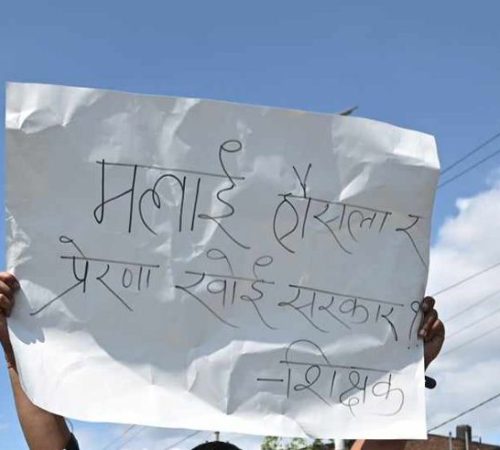 मलाई हौसला र
प्रेरणा खोई सरकार ?!
-शिक्षक